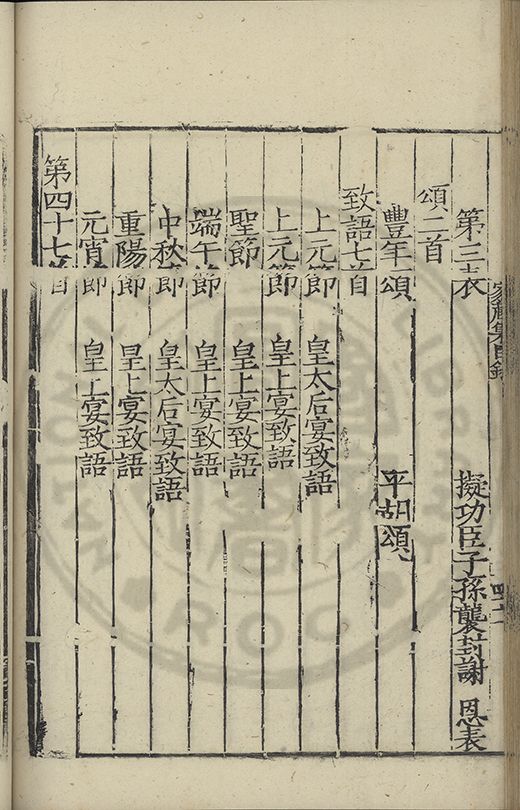 家藏集目錄
第三表 擬功臣子孫襲封謝 恩表
頌二首
豐年頌 平胡頌
致語七首
上元節 皇太后宴致語
上元節 皇上宴致語
聖節 皇上宴致語
端午節 皇上宴致語
中秋節 皇太后宴致語
重陽節 皇上宴致語
元宵節 皇上宴致語
第四十七